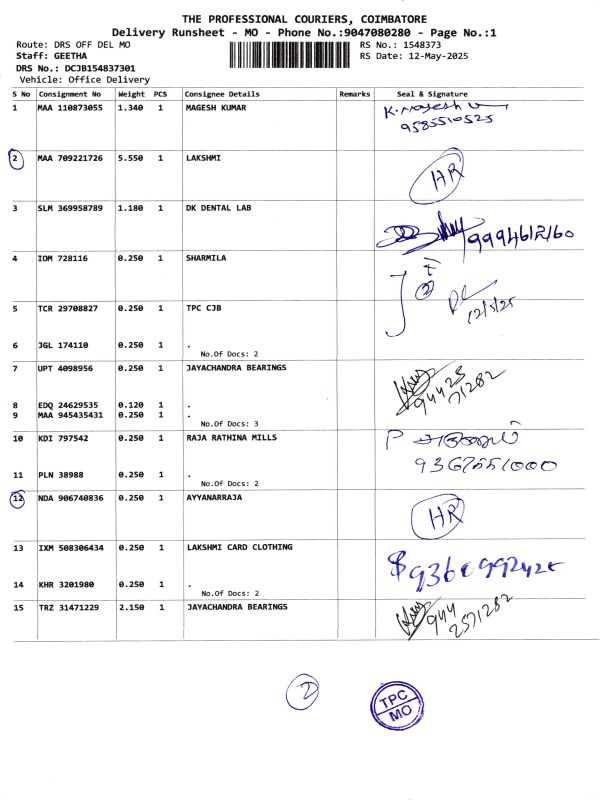 THE PROFESSIONAL COURIERS, COIMBATORE
Delivery Runsheet - MO - Phone No.:9047080280 - Page No.:1
Route: DRS OFF DEL MO RS No.: 1548373
Staff: GEETHA RS Date: 12-May-2025
DRS No.: DCJB154837301
Vehicle: Office Delivery
S No Consignment No Weight PCS Consignee Details Remarks Seal & Signature
1 MAA 110873055 1.340 1 MAGESH KUMAR K.Magesh
9585510525
2 MAA 709221726 5.550 1 LAKSHMI HR
3 SLM 369958789 1.180 1 DK DENTAL LAB 9994612160
4 IOM 728116 0.250 1 SHARMILA
2
12/5/25
5 TCR 29708827 0.250 1 TPC CJB
6 JGL 174110 0.250 1 .
No.Of Docs: 2
7 UPT 4098956 0.250 1 JAYACHANDRA BEARINGS
94425
71282
8 EDQ 24629535 0.120 1 .
9 MAA 945435431 0.250 1 .
No.Of Docs: 3
10 KDI 797542 0.250 1 RAJA RATHINA MILLS
11 PLN 38988 0.250 1 .
No.Of Docs: 2
12 NDA 906740836 0.250 1 AYYANARRAJA HR
13 IXM 508306434 0.250 1 LAKSHMI CARD CLOTHING
14 KHR 3201980 0.250 1 .
No.Of Docs: 2
15 TRZ 31471229 2.150 1 JAYACHANDRA BEARINGS 944
2571282
2
TPC
MO